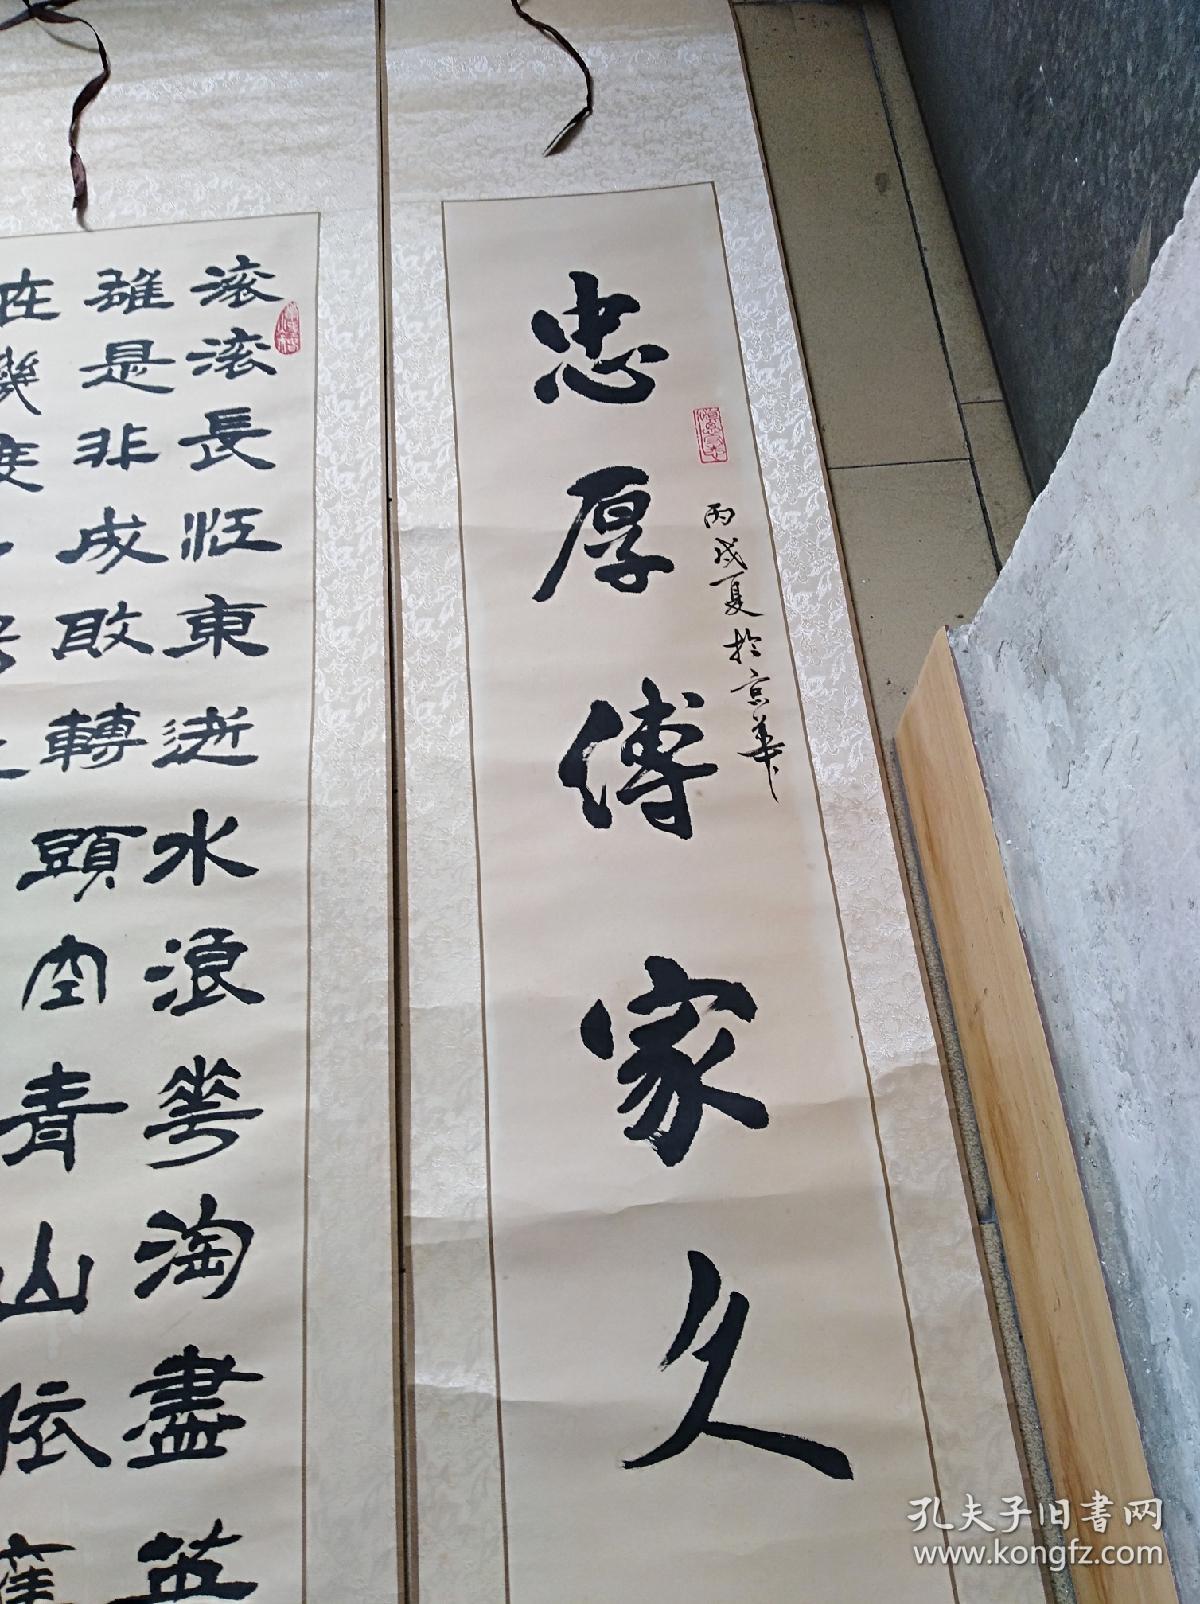 忠厚傳家久
丙戌夏於京華
滚滚長江東逝水浪花淘盡英
雄是非成敗轉頭空青山依舊
在幾度
孔夫子旧書网
www.kongfz.com